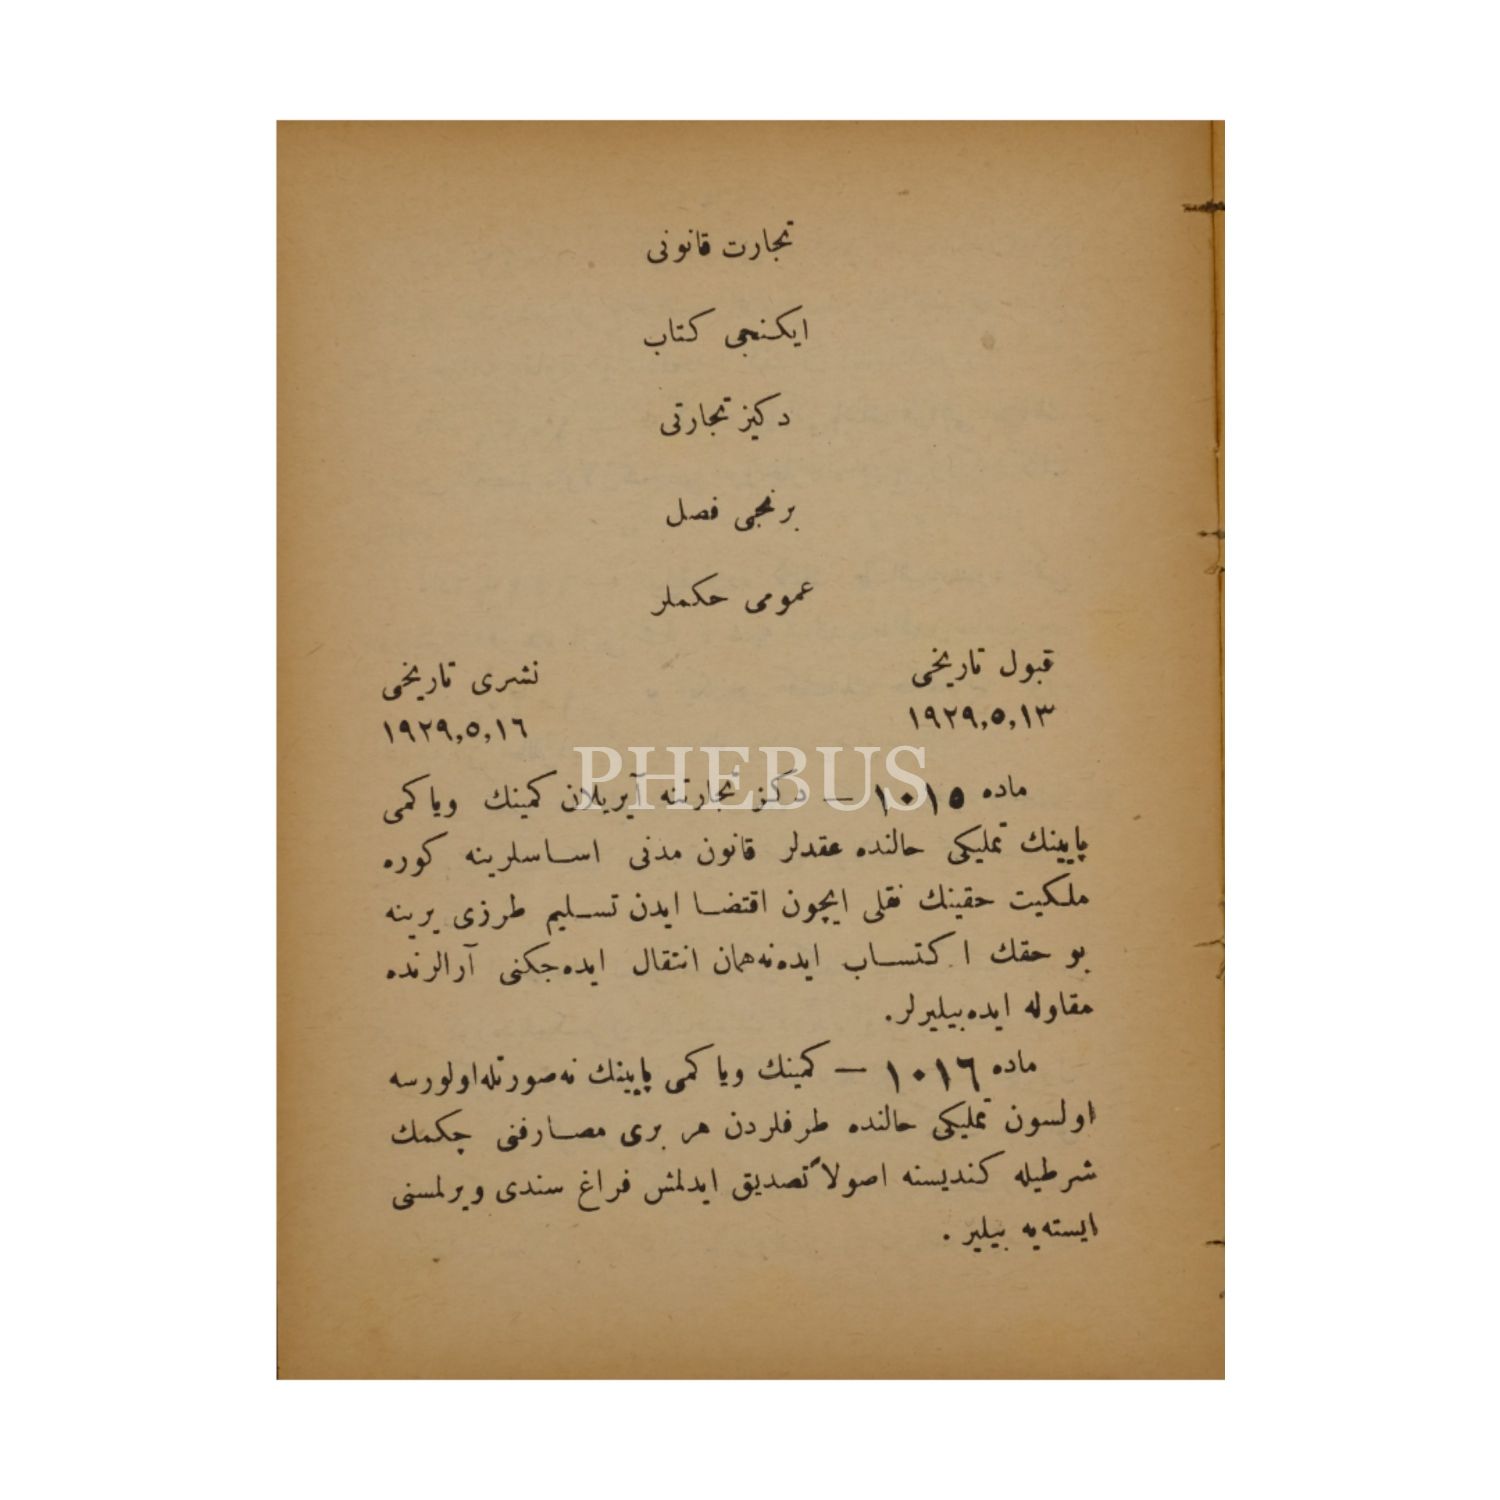 تجارت قانونی
ایكنجی كتاب
دكیز تجارتی
برنجی فصل
عمومی حكملر
قبول تاریخی
نشری تاریخی
١٩٢٩,٥,١٣
١٩٢٩,٥,١٦
PHEBUS
ماده ١٠١٥ — دكیز تجارتنه آیریلان كمینك ویا كمی
پایینك تملیكی حالنده عقدلر قانون مدنی اساسلرینه كوره
ملكیت حقینك نقلی ایچون اقتضا ایدن تسلیم طرزی یرینه
بو حقك اكتساب ایده‌نه همان انتقال ایده‌جكنی آرالرنده
مقاوله ایده بیلیرلر.
ماده ١٠١٦ — كمینك ویا كمی پایینك نه‌صورتله اولورسه
اولسون تملیكی حالنده طرفلردن هر بری مصارفنی چكمك
شرطیله كندیسنه اصولاً تصدیق ایدلمش فراغ سندی ویرلمسنی
ایسته‌یه بیلیر .